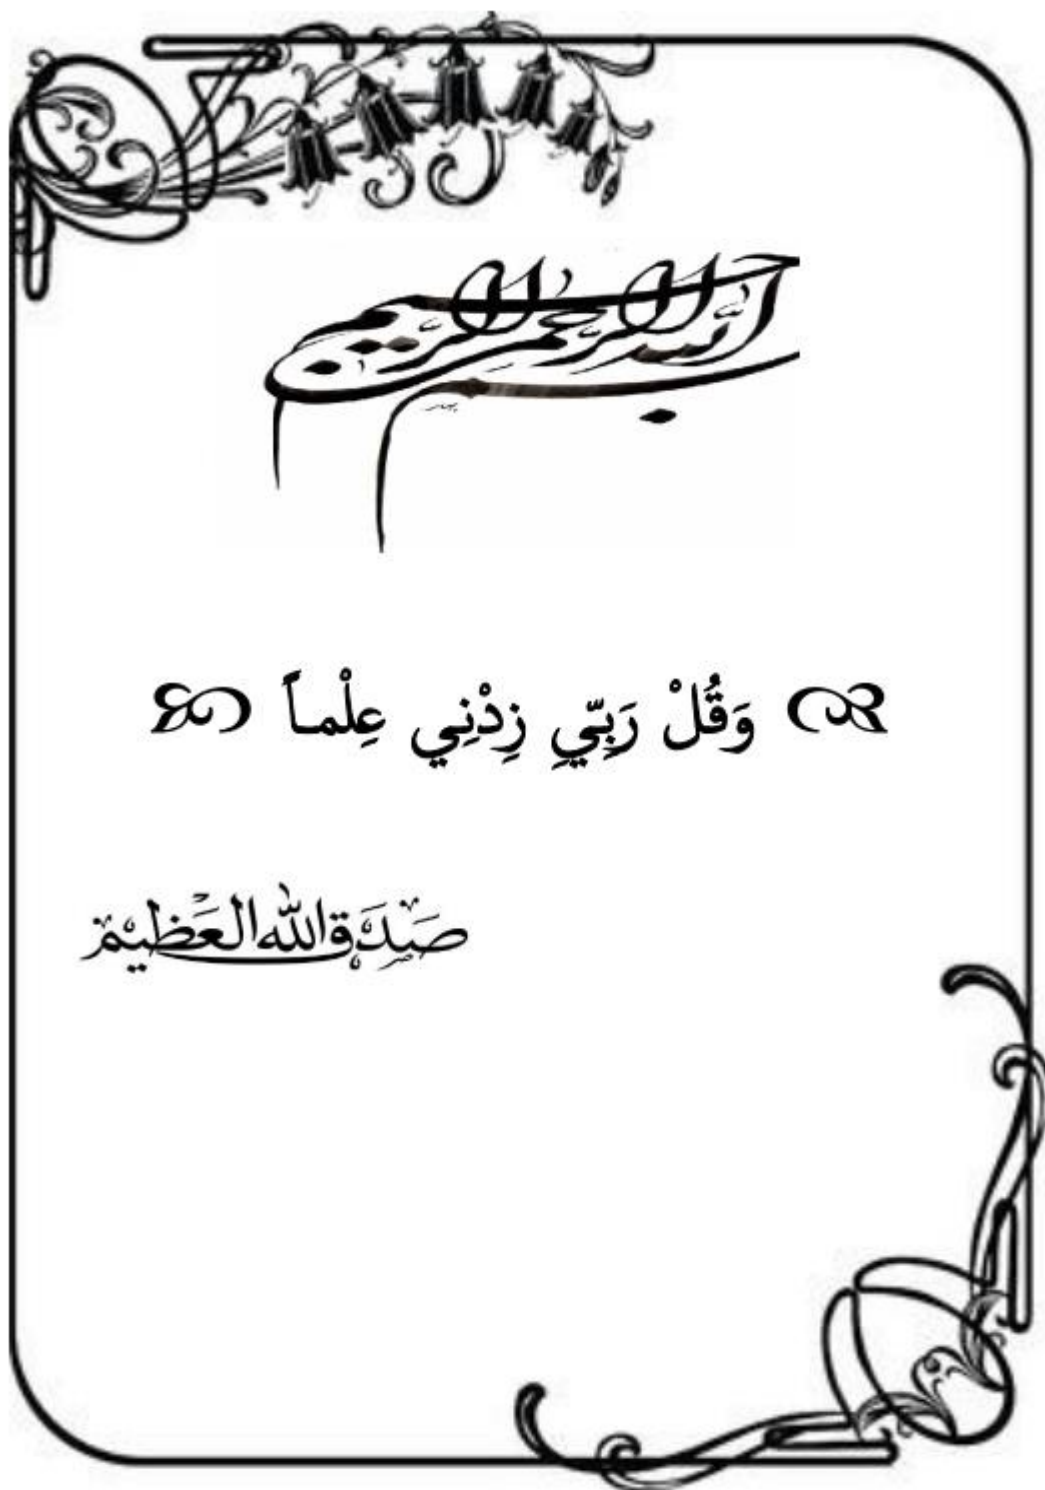 بسم الله الرحمن الرحيم
وَقُلْ رَبِّيِ زِدْنِي عِلْماً
صَدَقَ الله العَظيم